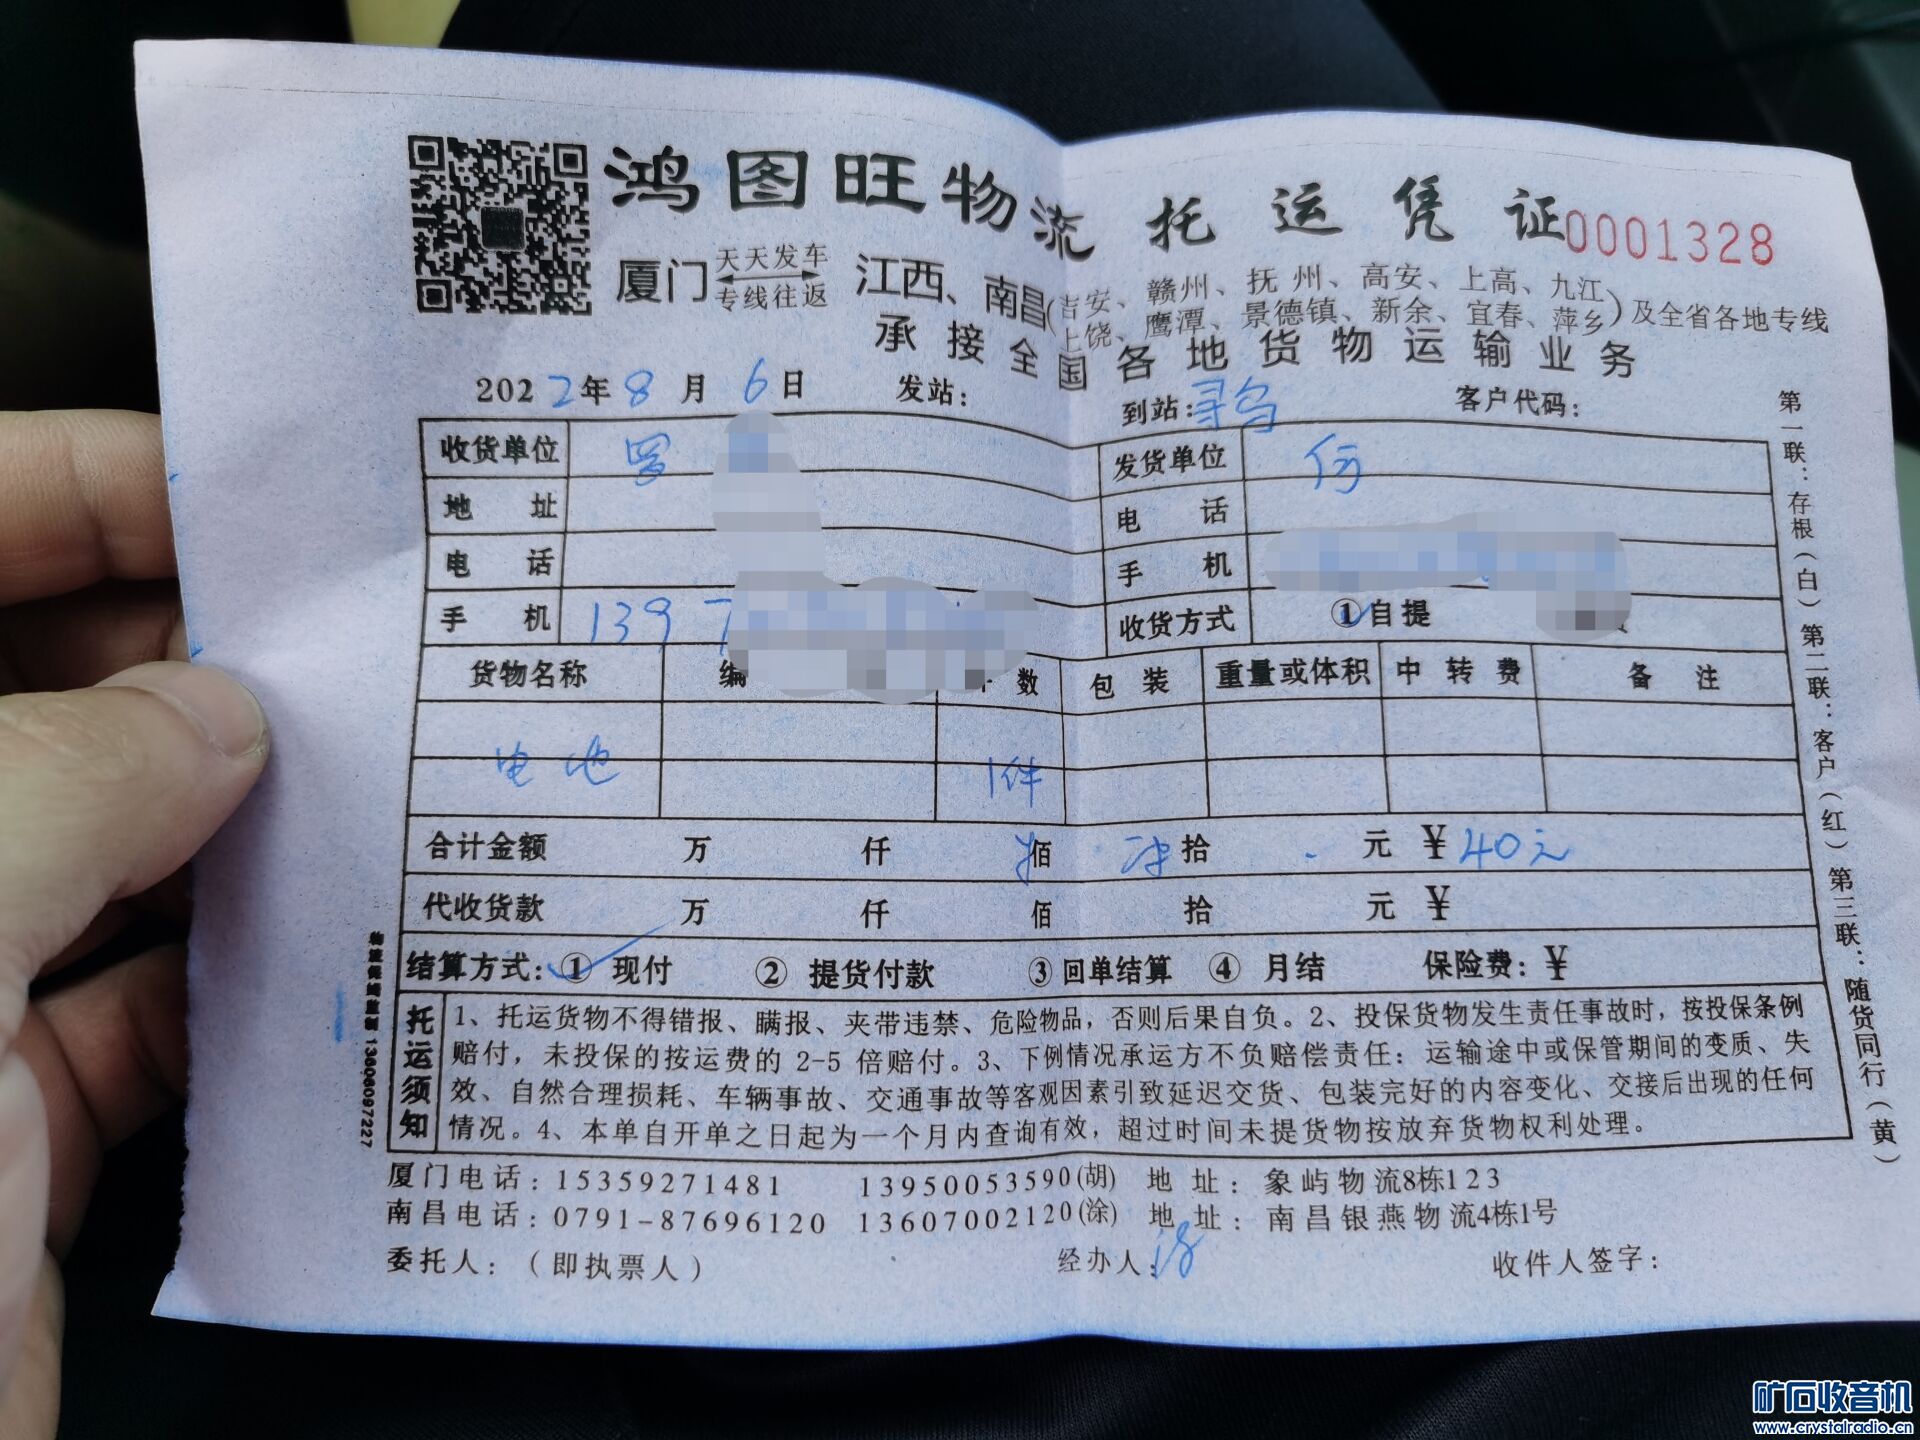 鸿图旺物流托运凭证 0001328
厦门 天天发车 专线往返 江西、南昌(吉安、赣州、抚州、高安、上高、九江、上饶、鹰潭、景德镇、新余、宜春、萍乡)及全省各地专线
承接全国各地货物运输业务
2022年8月6日 发站: 到站:寻乌 客户代码:
收货单位 罗 发货单位 何
地址 电话
电话 手机
手机 139 7 收货方式 ①自提
货物名称 编 件数 包装 重量或体积 中转费 备注
电池 1件
合计金额 万 仟 佰 拾 元 ¥40元
代收货款 万 仟 佰 拾 元 ¥
结算方式: ① 现付 ② 提货付款 ③ 回单结算 ④ 月结 保险费: ¥
托运须知
1、托运货物不得错报、瞒报、夹带违禁、危险物品,否则后果自负。2、投保货物发生责任事故时,按投保条例
赔付,未投保的按运费的 2-5 倍赔付。3、下例情况承运方不负赔偿责任: 运输途中或保管期间的变质、失
效、自然合理损耗、车辆事故、交通事故等客观因素引致延迟交货、包装完好的内容变化、交接后出现的任何
情况。4、本单自开单之日起为一个月内查询有效,超过时间未提货物按放弃货物权利处理。
厦门电话: 15359271481 13950053590(胡) 地址: 象屿物流8栋123
南昌电话: 0791-87696120 13607002120(涂) 地址: 南昌银燕物流4栋1号
委托人: (即执票人) 经办人: 收件人签字:
第一联: 存根(白) 第二联: 客户(红) 第三联: 随货同行(黄)
13606097227
矿石收音机
www.crystalradio.cn